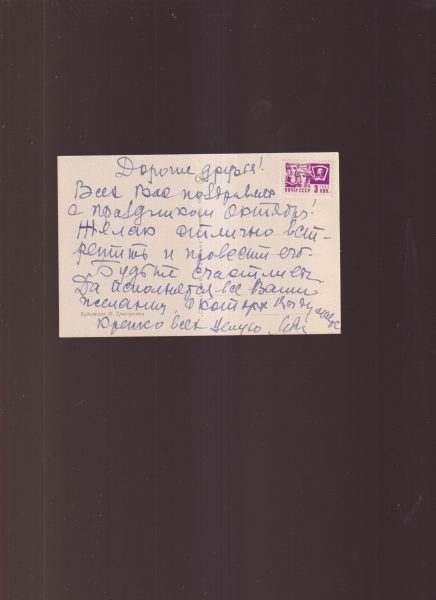 Дорогие друзья!
Всех Вас поздравляю
с праздником Октября!
Желаю отлично вст-
ретить и провести его.
Будьте счастливы.
Да исполнятся все Ваши
желания, о которых Вы думаете
Крепко всех целую
ПОЧТА СССР
3 коп.
Художник